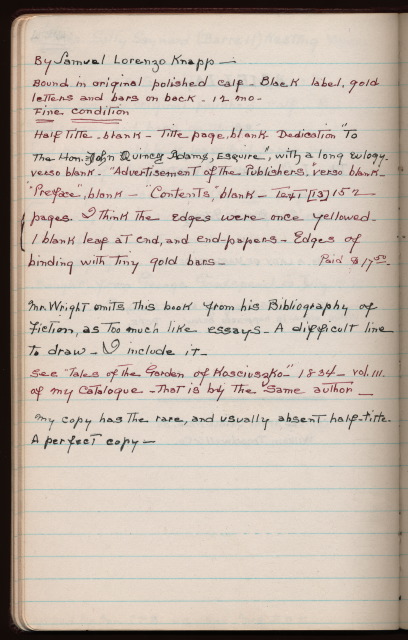 By Samuel Lorenzo Knapp —
Bound in original polished calf - Black label, gold
letters and bars on back - 12 mo -
Fine condition
Half title - blank - Title page, blank Dedication "To
the Hon. John Quincy Adams, Esquire", with a long eulogy -
verso blank - "Advertisement of the Publishers," verso blank -
"Preface", blank - "Contents," blank - Text [13] 152
pages. I think the edges were once yellowed -
1 blank leaf at end, and end-papers - Edges of
binding with tiny gold bars Paid $17.50
Mr. Wright omits this book from his Bibliography of
Fiction, as too much like essays - A difficult line
to draw - I include it -
See "Tales of the Garden of Kosciuszko" 1834 - vol. III.
of my Catalogue - That is by the same author —
My copy has the rare, and usually absent half-title.
A perfect copy —